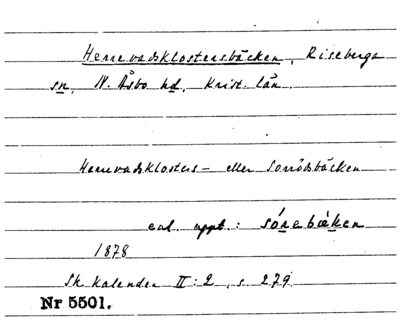 Herrevadsklostersbäcken, Riseberga
sn, N. Åsbo hd, Krist. län.
Herrevadsklosters- eller Sorrödsbäcken
enl. uppt.: sónebæken
1878
Sk. Kalender II:2, s. 279.
Nr 5501.